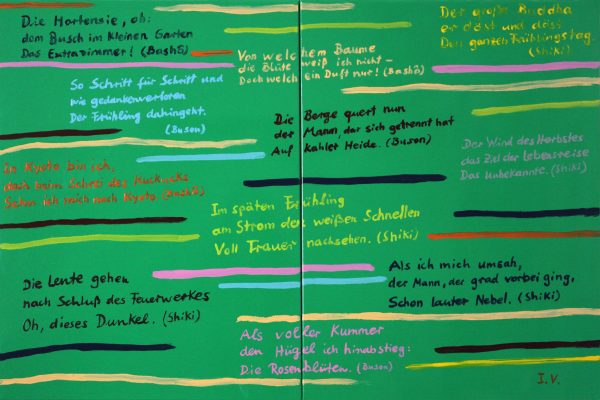 Die Hortensie, oh:
dem Busch im kleinen Garten
Das Extrazimmer! (Bashō)
Von welchem Baume
die Blüte weiß ich nicht –
Doch welch ein Duft nur! (Bashō)
Der große Buddha
er döst und döst
Den ganzen Frühlingstag.
(Shiki)
So Schritt für Schritt und
wie gedankenverloren
Der Frühling dahingeht.
(Buson)
Die Berge quert nun
der Mann, der sich getrennt hat
Auf kahler Heide. (Buson)
Der Wind des Herbstes
das Ziel der Lebensreise
Das Unbekannte. (Shiki)
In Kyoto bin ich,
doch beim Schrei des Kuckucks
Sehn ich mich nach Kyoto (Bashō)
Im späten Frühling
am Strom den weißen Schnellen
Voll Trauer nachsehen. (Shiki)
Die Leute gehen
nach Schluß des Feuerwerkes
Oh, dieses Dunkel. (Shiki)
Als ich mich umsah,
der Mann, der grad vorbei ging,
Schon lauter Nebel. (Shiki)
Als voller Kummer
den Hügel ich hinabstieg:
Die Rosenblüten. (Buson)
I.V.